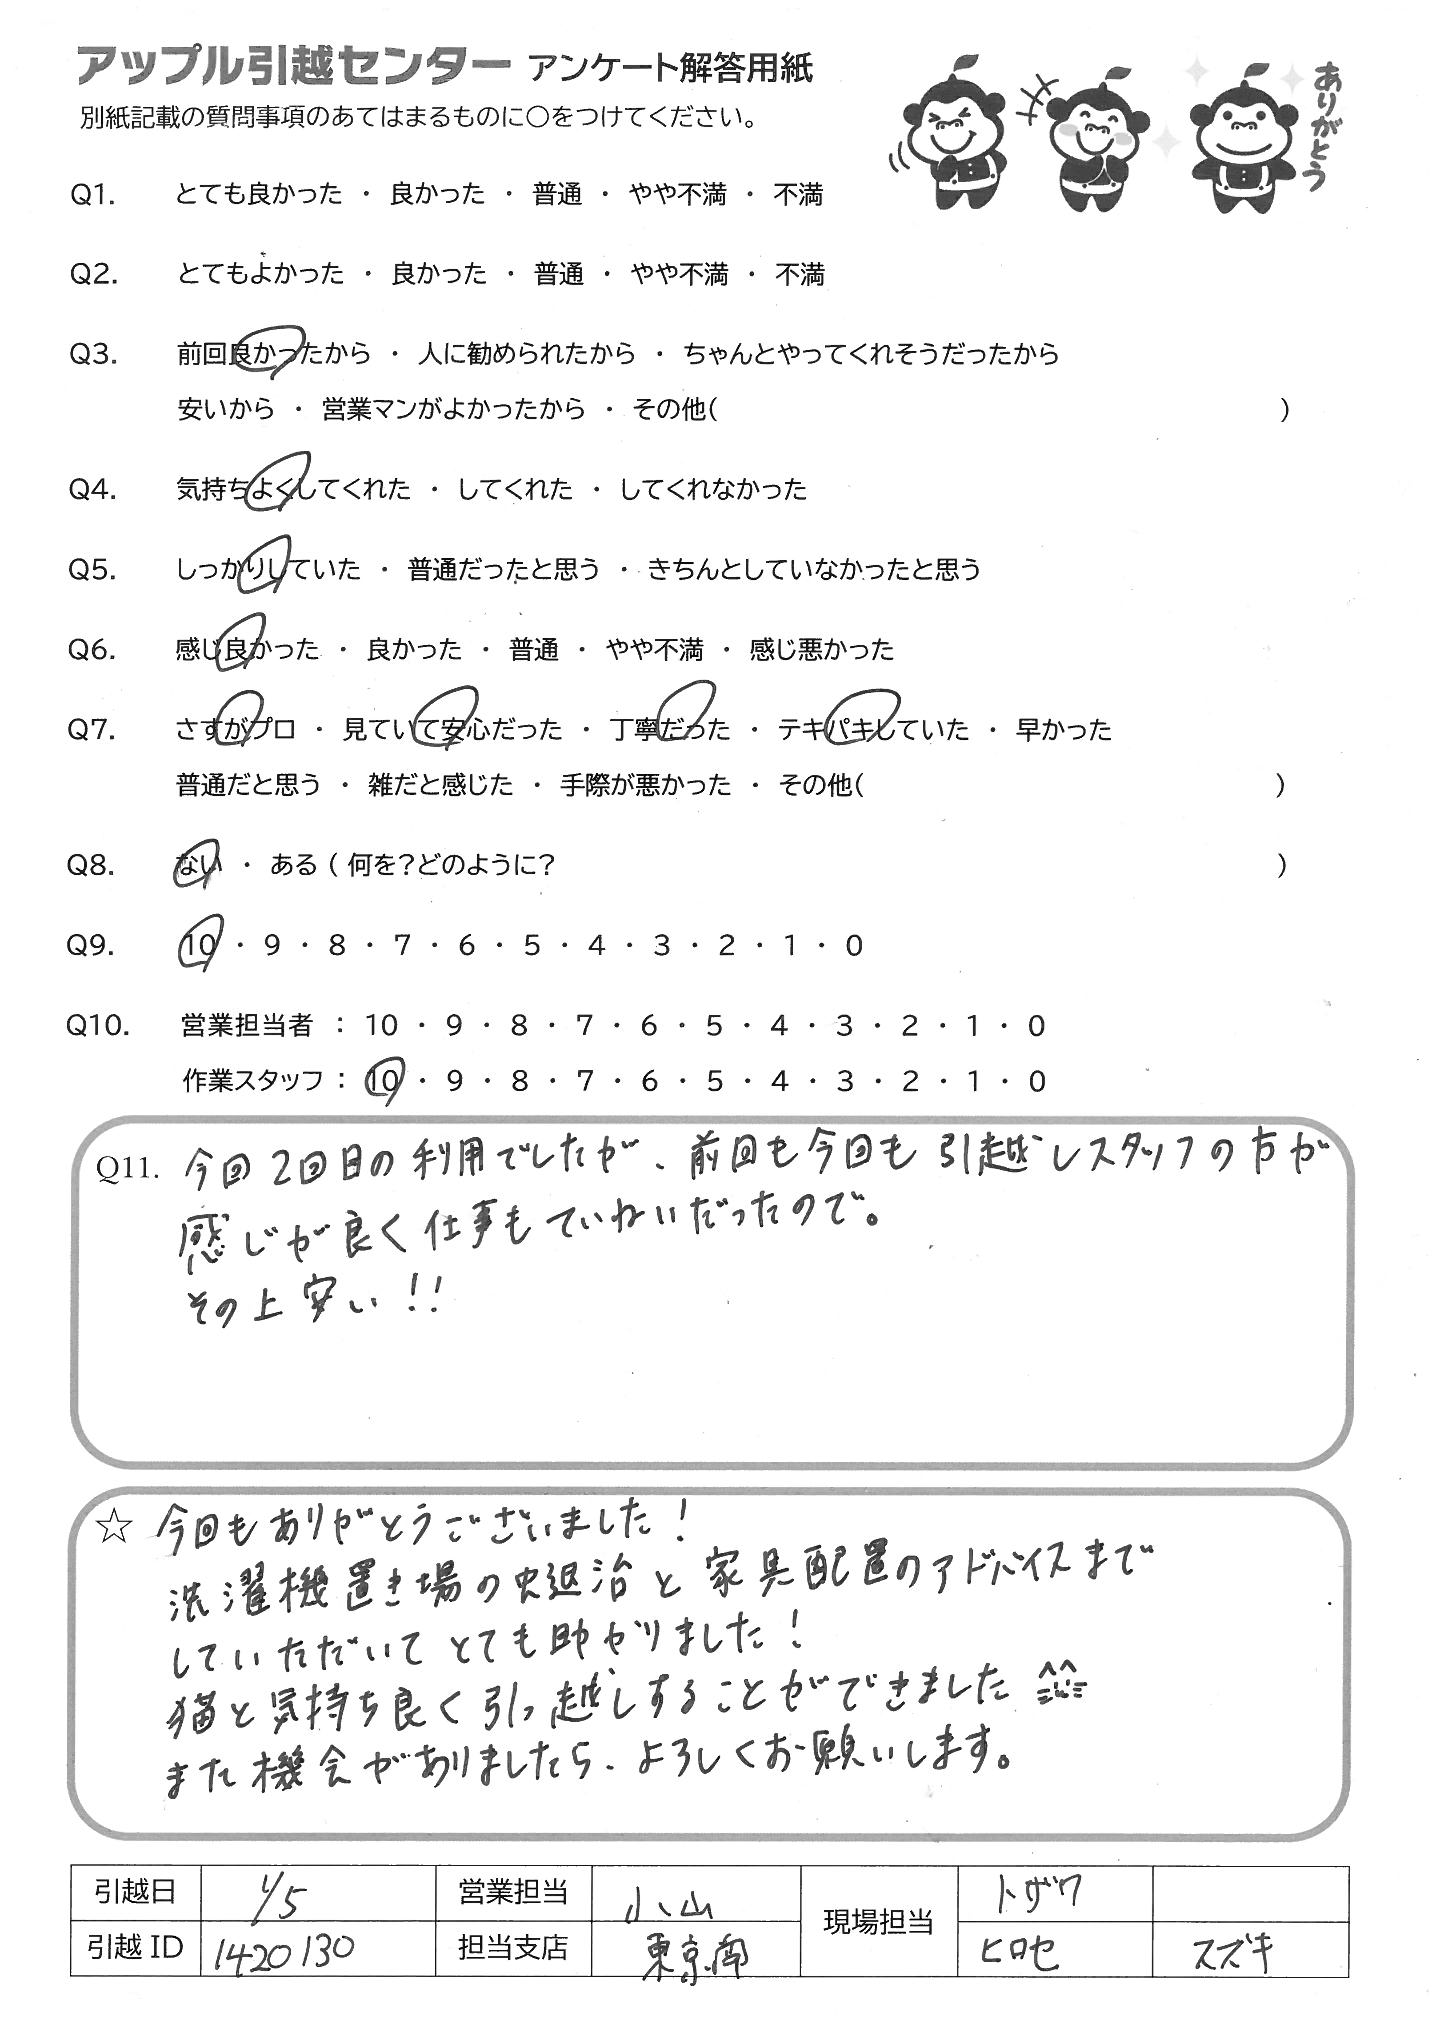 アップル引越センター アンケート解答用紙
別紙記載の質問事項のあてはまるものに○をつけてください。
ありがとう
Q1. とても良かった ・ 良かった ・ 普通 ・ やや不満 ・ 不満
Q2. とてもよかった ・ 良かった ・ 普通 ・ やや不満 ・ 不満
Q3. 前回良かったから ・ 人に勧められたから ・ ちゃんとやってくれそうだったから
安いから ・ 営業マンがよかったから ・ その他( )
Q4. 気持ちよくしてくれた ・ してくれた ・ してくれなかった
Q5. しっかりしていた ・ 普通だったと思う ・ きちんとしていなかったと思う
Q6. 感じ良かった ・ 良かった ・ 普通 ・ やや不満 ・ 感じ悪かった
Q7. さすがプロ ・ 見ていて安心だった ・ 丁寧だった ・ テキパキしていた ・ 早かった
普通だと思う ・ 雑だと感じた ・ 手際が悪かった ・ その他( )
Q8. ない ・ ある ( 何を?どのように? )
Q9. 10 ・ 9 ・ 8 ・ 7 ・ 6 ・ 5 ・ 4 ・ 3 ・ 2 ・ 1 ・ 0
Q10. 営業担当者 : 10 ・ 9 ・ 8 ・ 7 ・ 6 ・ 5 ・ 4 ・ 3 ・ 2 ・ 1 ・ 0
作業スタッフ : 10 ・ 9 ・ 8 ・ 7 ・ 6 ・ 5 ・ 4 ・ 3 ・ 2 ・ 1 ・ 0
Q11. 今回2回目の利用でしたが、前回も今回も引越しスタッフの方が
感じが良く仕事もていねいだったので。
その上安い!!
☆ 今回もありがとうございました!
洗濯機置き場の虫退治と家具配置のアドバイスまで
していただいてとても助かりました!
猫と気持ち良く引っ越しすることができました
また機会がありましたら、よろしくお願いします。
引越日 1/5 営業担当 小山 現場担当 トザワ
引越ID 1420130 担当支店 東京南 ヒロセ スズキ